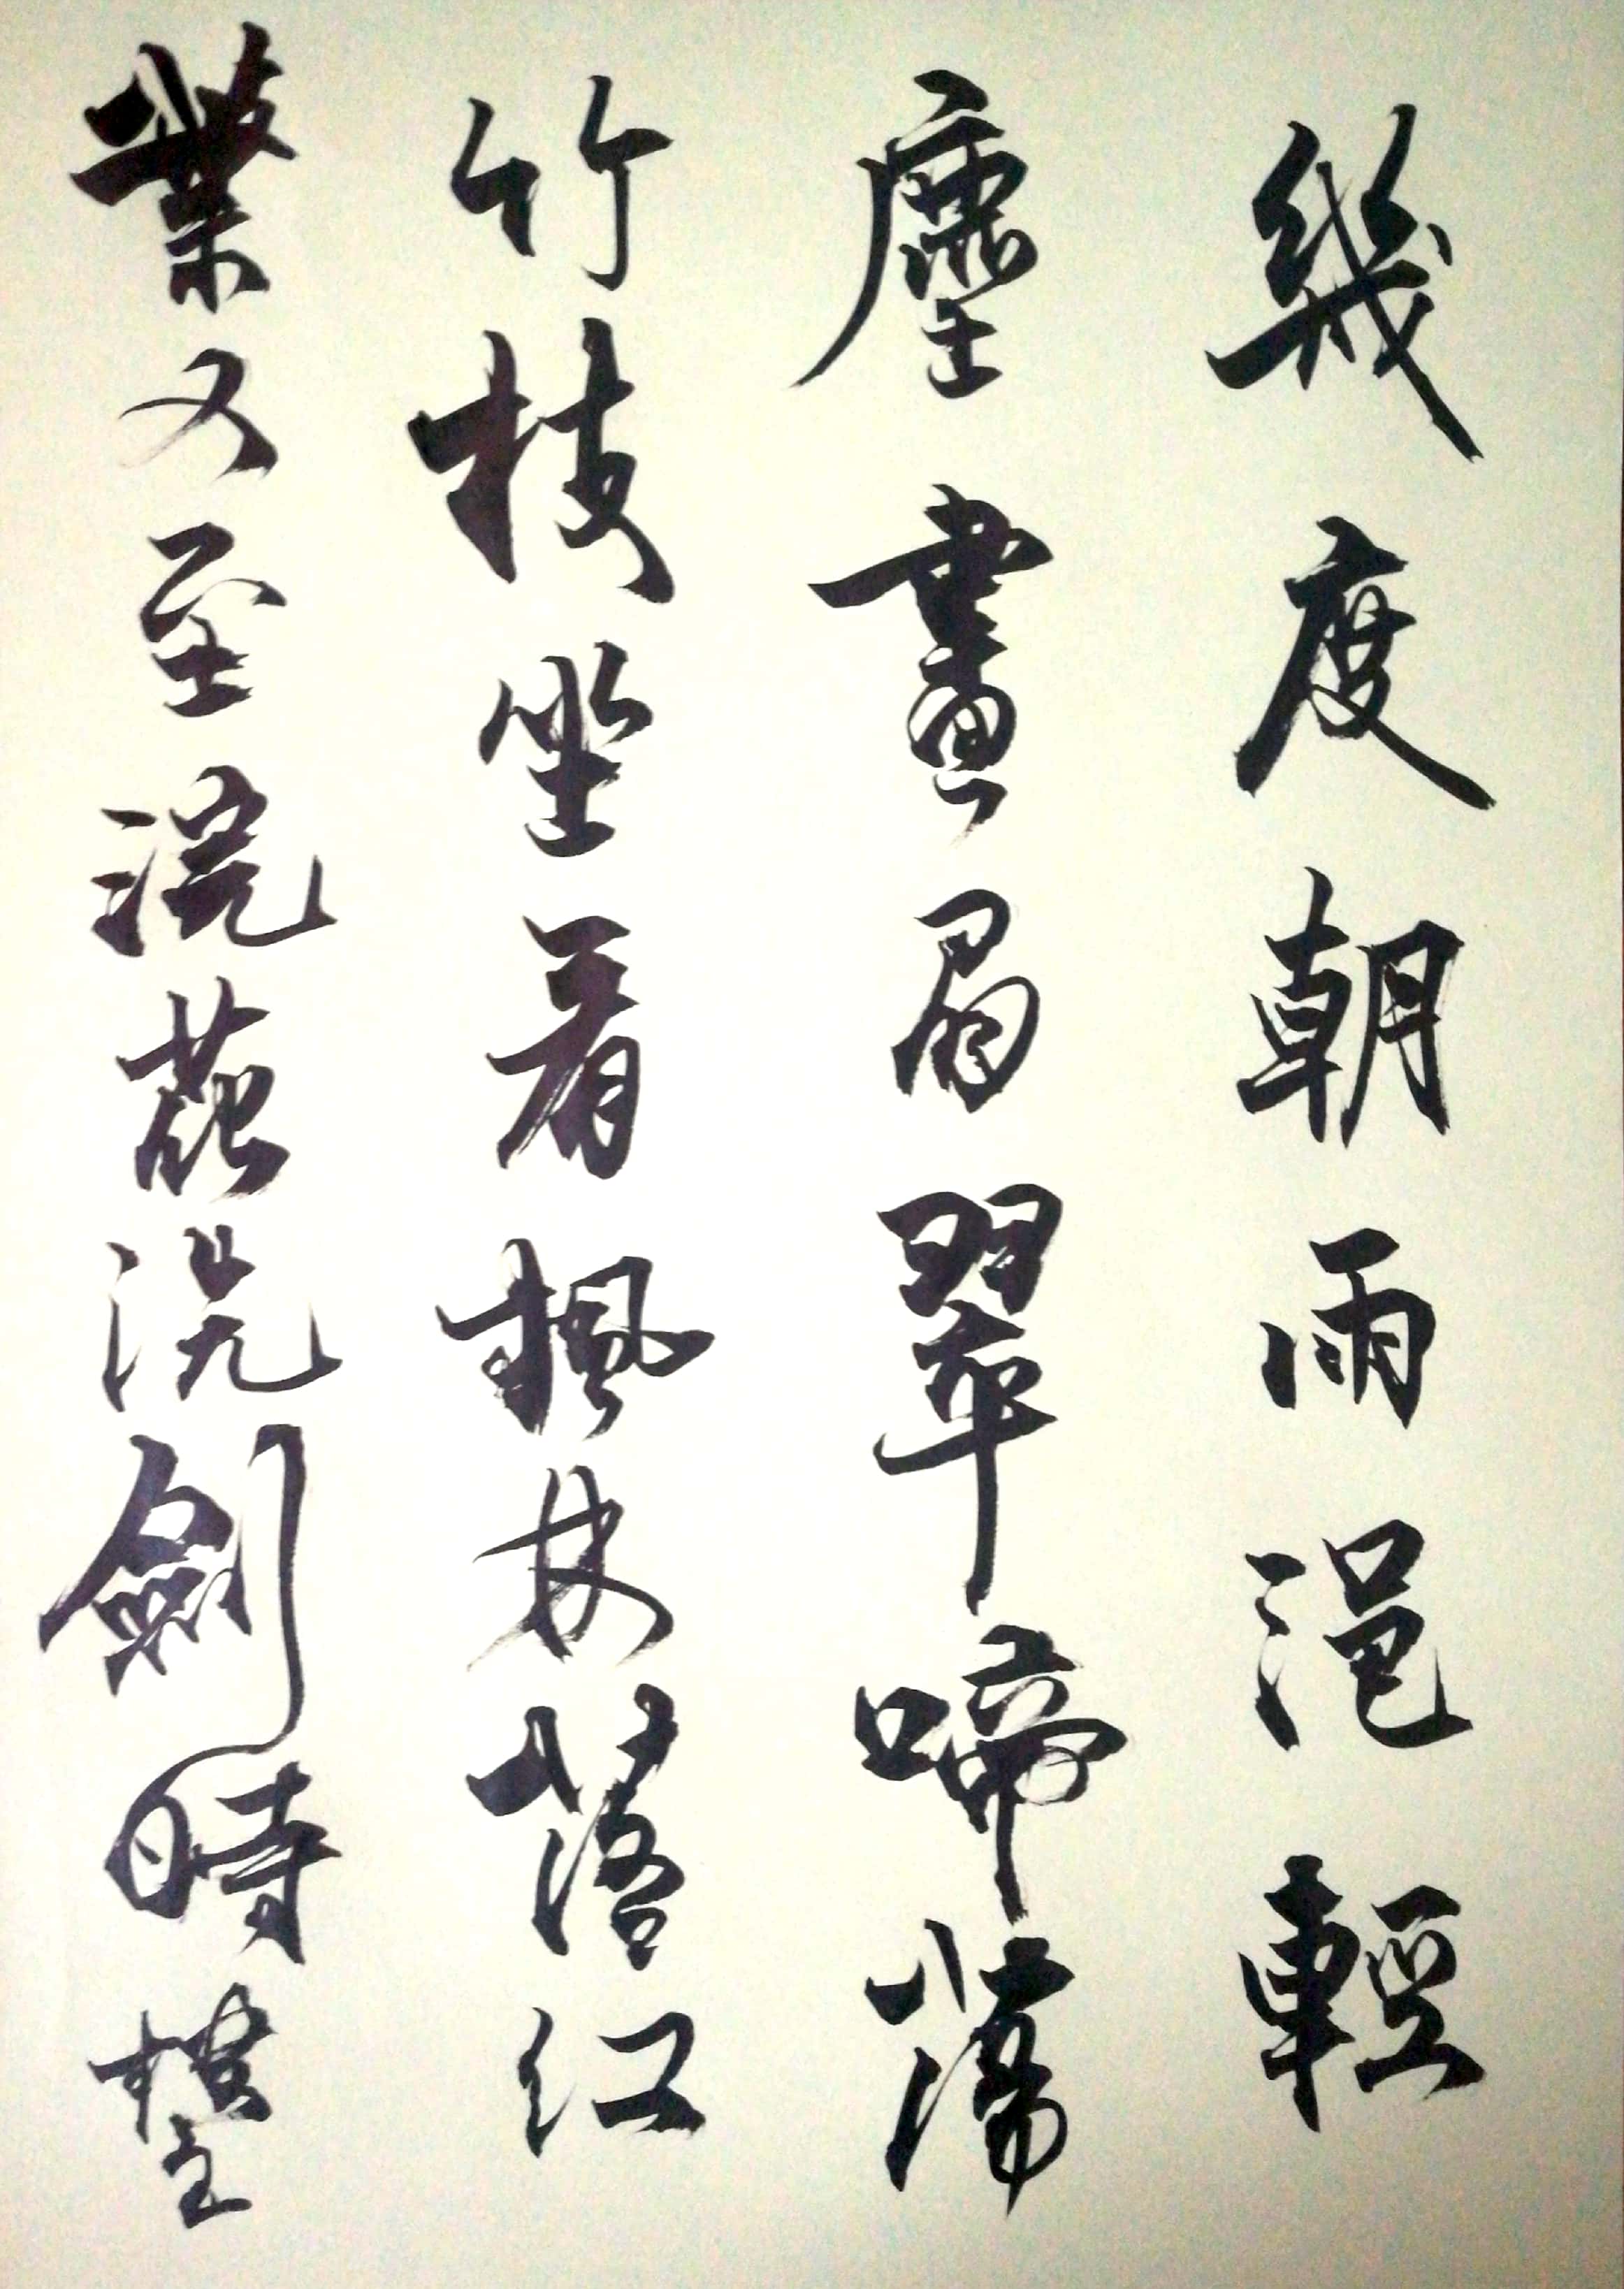 幾度朝雨浥輕
塵畫眉翠啼蕩
竹枝坐看楓林落紅
葉又至浣花洗劍時